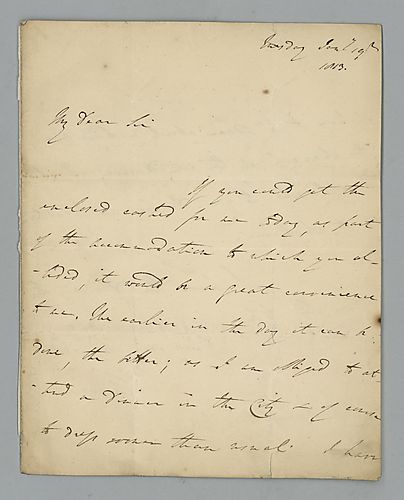 Tuesday Jany. 19th
1813.
My Dear Sir
If you could get the
enclosed cashed for me today, as part
of the accommodation to which you al-
-luded, it would be a great convenience
to me. The earlier in the day it can be
done, the better; as I am obliged to at-
-tend a Dinner in the City & of course
to dress sooner than usual. I have